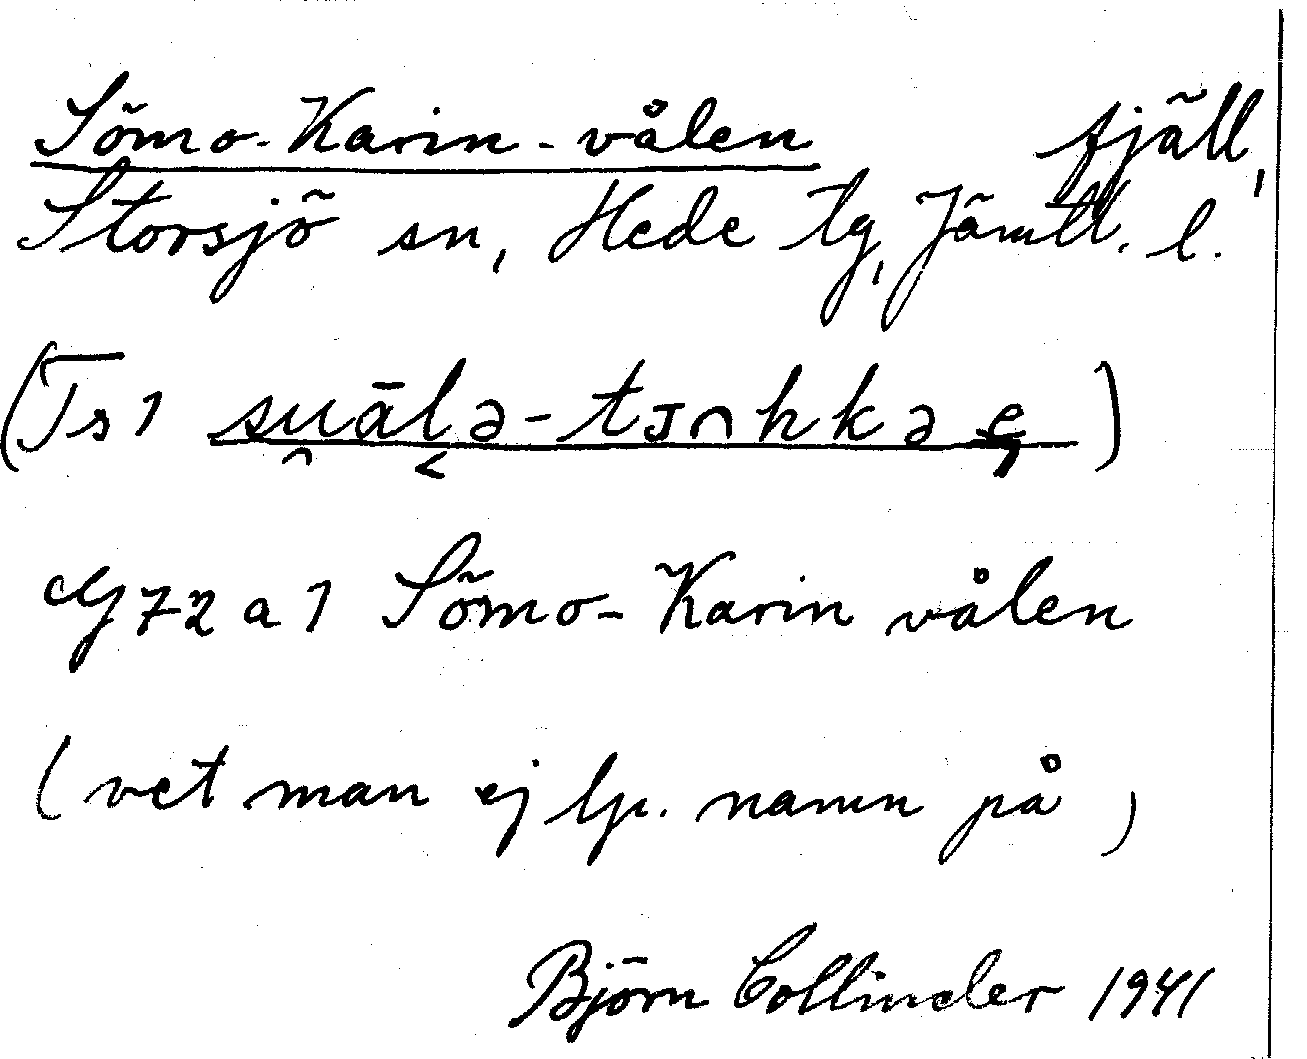 Sömo-Karin-vålen fjäll,
Storsjö sn, Hede tg, Jämtl. l.
(Ts 1 su̯ālə-tɪnhkə)
G 72 a 1 Sömo-Karin vålen
(vet man ej lp. namn på)
Björn Collinder 1941